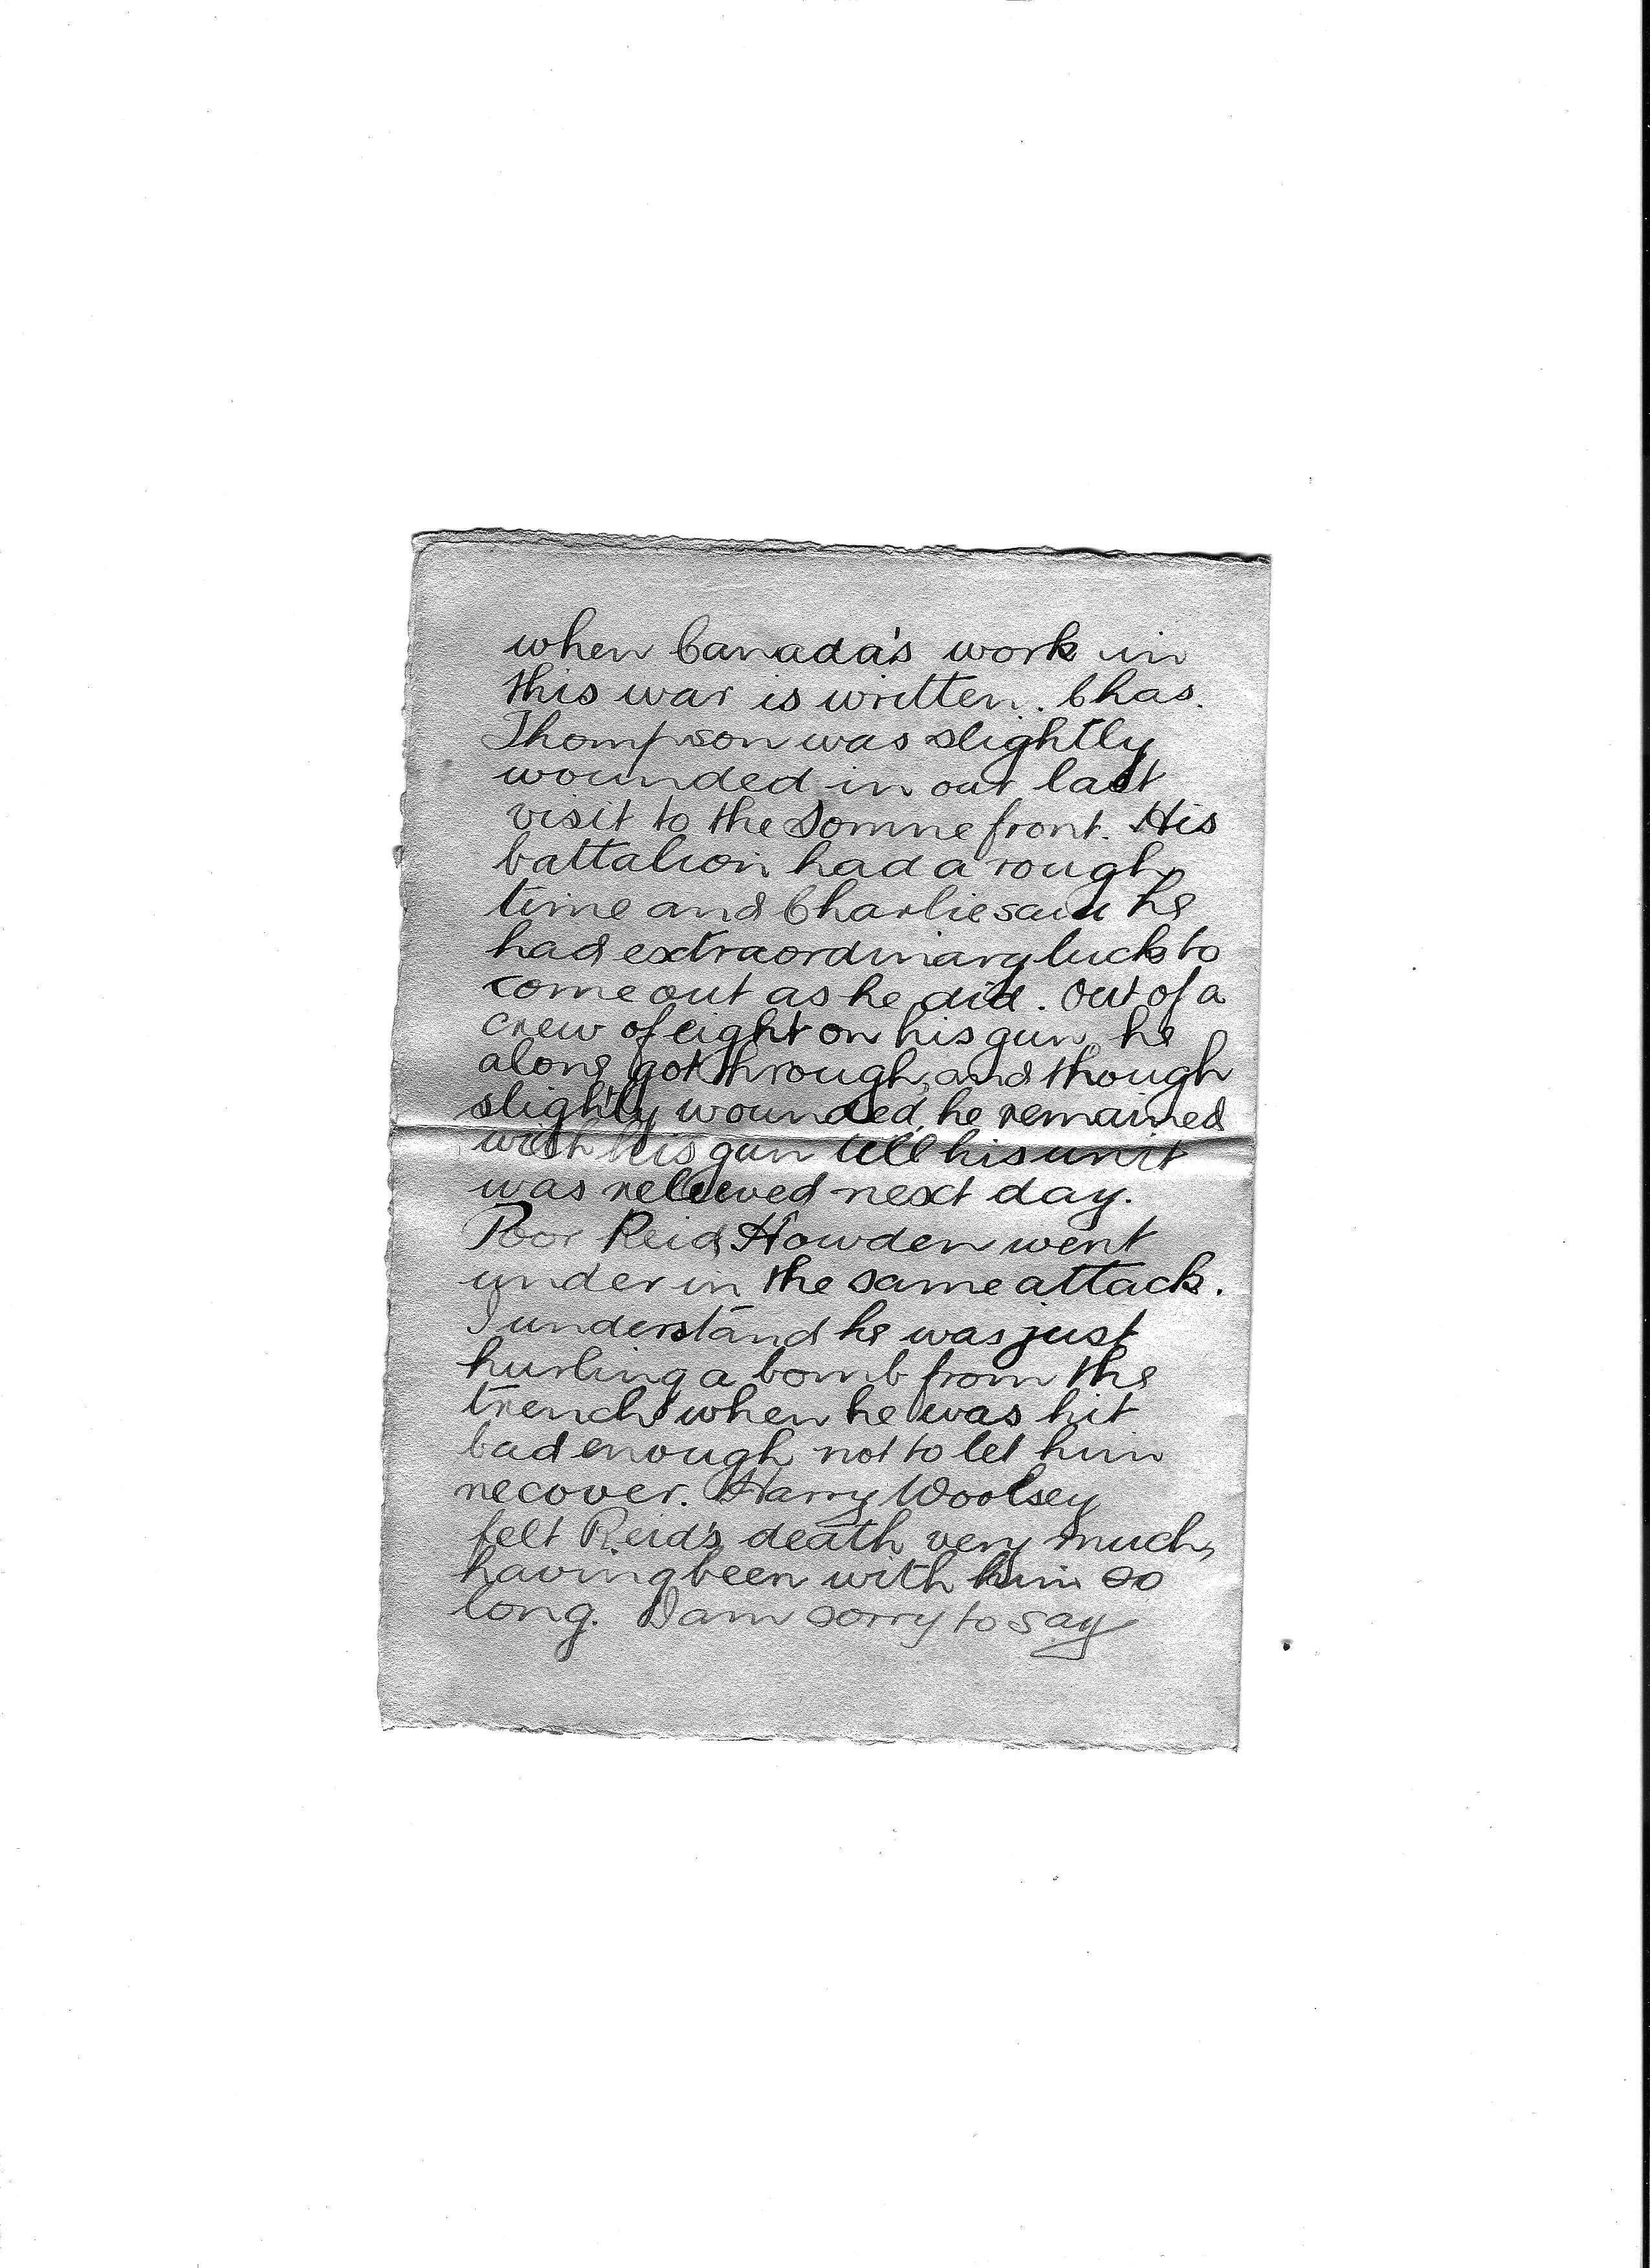 when Canada's work in
this war is written. Chas.
Thompson was slightly
wounded in our last
visit to the Somme front. His
battalion had a rough
time and Charlie said he
had extraordinary luck to
come out as he did. Out of a
crew of eight on his gun, he
alone got through, and though
slightly wounded, he remained
with his gun till his unit
was relieved next day.
Poor Reid Howden went
under in the same attack.
I understand he was just
hurling a bomb from the
trench when he was hit
bad enough not to let him
recover. Harry Woolsey
felt Reid's death very much,
having been with him so
long. I am sorry to say